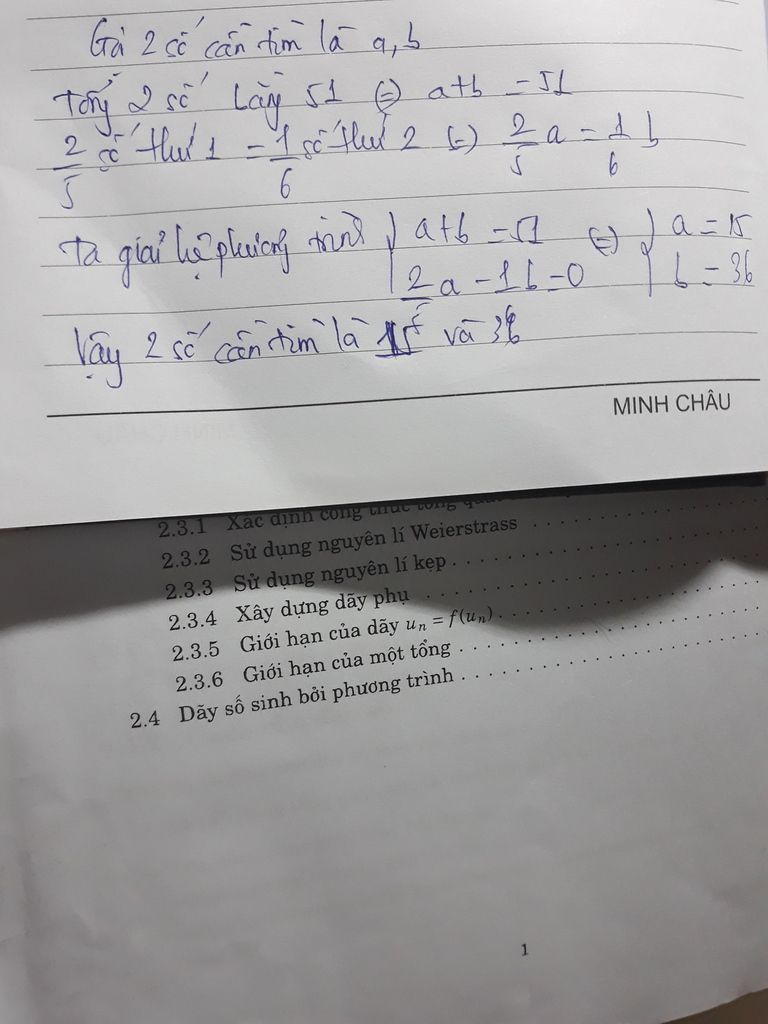 Gọi 2 số cần tìm là a, b
Tổng 2 số bằng 51 (=) a+b = 51
2/5 số thứ 1 = 1/6 số thứ 2 (=) 2/5 a = 1/6 b
Ta giải hệ phương trình { a+b = 51 (=) { a = 15
2a - 1b = 0 b = 36
Vậy 2 số cần tìm là 15 và 36
MINH CHÂU
2.3.1 Xác định công thức tổng
2.3.2 Sử dụng nguyên lí Weierstrass
2.3.3 Sử dụng nguyên lí kẹp
2.3.4 Xây dựng dãy phụ
2.3.5 Giới hạn của dãy uₙ = f(uₙ)
2.3.6 Giới hạn của một tổng
2.4 Dãy số sinh bởi phương trình
1